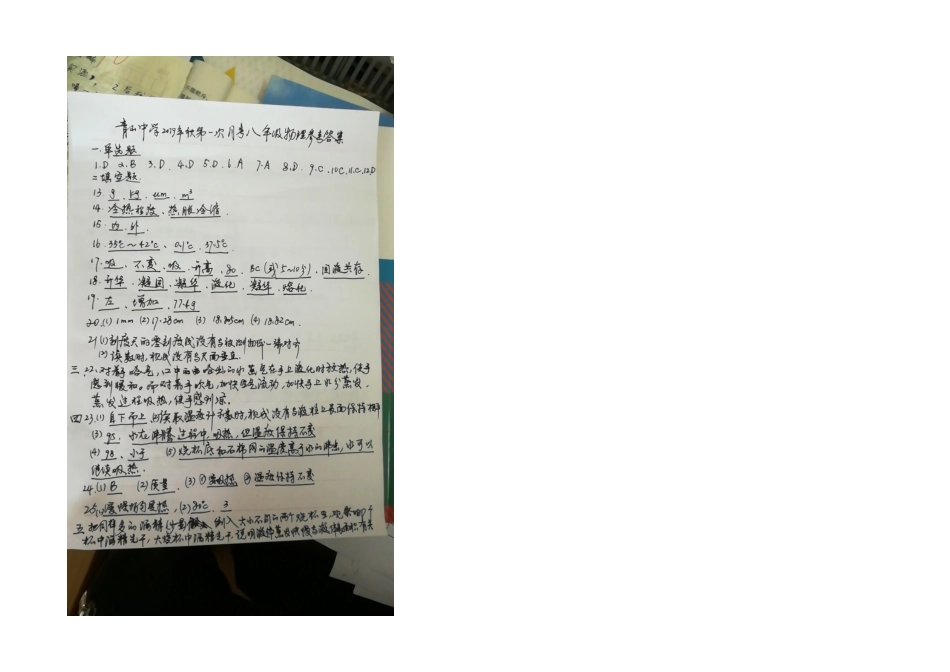 青山中学2019年秋第一次月考八年级物理参考答案
一.单选题
1.D 2.B 3.D 4.D 5.D 6.A 7.A 8.D 9.C 10C 11.C 12D
二填空题
13. g . kg . μm . m³
14. 冷热程度、热胀冷缩.
15. 内. 外.
16. 35℃～42℃、0.1℃. 37.5℃
17. 吸、不变、吸、升高、80、BC(或5~10分)、固液共存.
18. 升华、凝固、凝华、液化、凝华、熔化.
19. 左、增加、77.4g
20.(1) 1mm (2) 17.28cm (3) 18.805cm (4) 18.82cm.
21(1)刻度尺的零刻度线没有与被测物体一端对齐
(2)读数时,视线没有与尺面垂直.
三.22.对着手哈气,口中哈出的水蒸气在手上液化时放热,使手
感到暖和。而对着手吹气,加快空气流动,加快手上水分蒸发,
蒸发过程吸热,使手感到凉.
四23.(1)自下而上 (2)读取温度计示数时,视线没有与液柱上表面保持相平
(3) 95. 水在沸腾过程中,吸热,但温度保持不变
(4) 98、小于 (5)烧杯底和石棉网的温度高于水的沸点,水可以
继续吸热.
24.(1)B (2)质量 (3)①要吸热 ②温度保持不变
25.(1)使均匀受热,(2)80℃. 3
五.把同样多的酒精 倒入大小不同的两个烧杯里,观察到小
杯中酒精先干,大烧杯中酒精先干,说明液体蒸发快慢与液体表面积有关